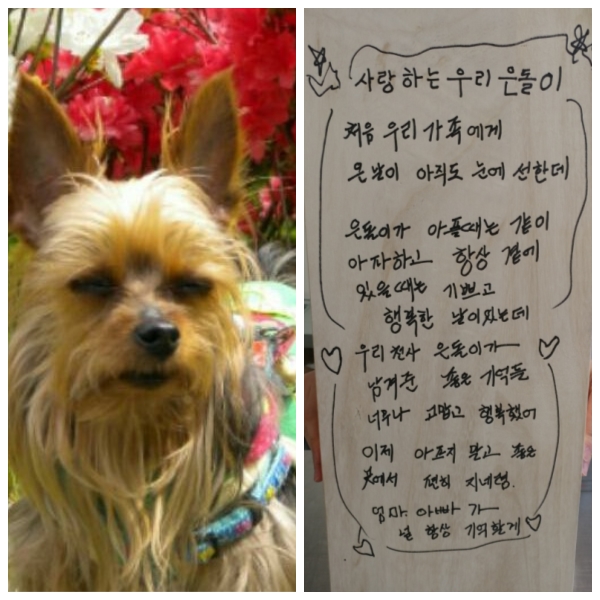 사랑하는 우리 은돌이
처음 우리 가족에게
온날이 아직도 눈에 선한데
은돌이가 아플때는 같이
아파하고 항상 곁에
있을때는 기쁘고
행복한 날이었는데
우리 천사 은돌이가
남겨준 좋은 기억들
너무나 고맙고 행복했어
이제 아프지 말고 좋은
곳에서 편히 지내렴.
엄마 아빠가
널 항상 기억할게